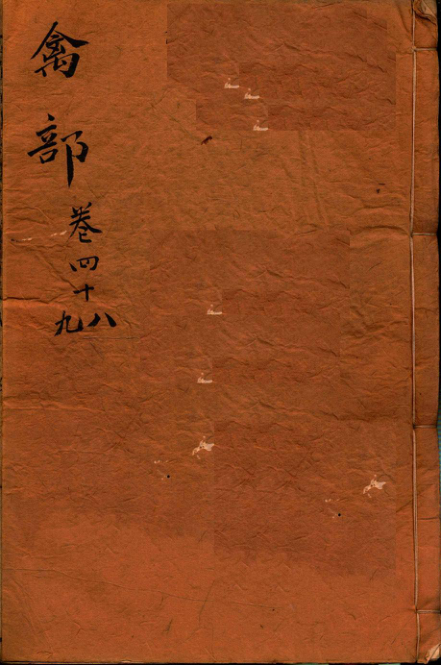 禽部
卷四十八九